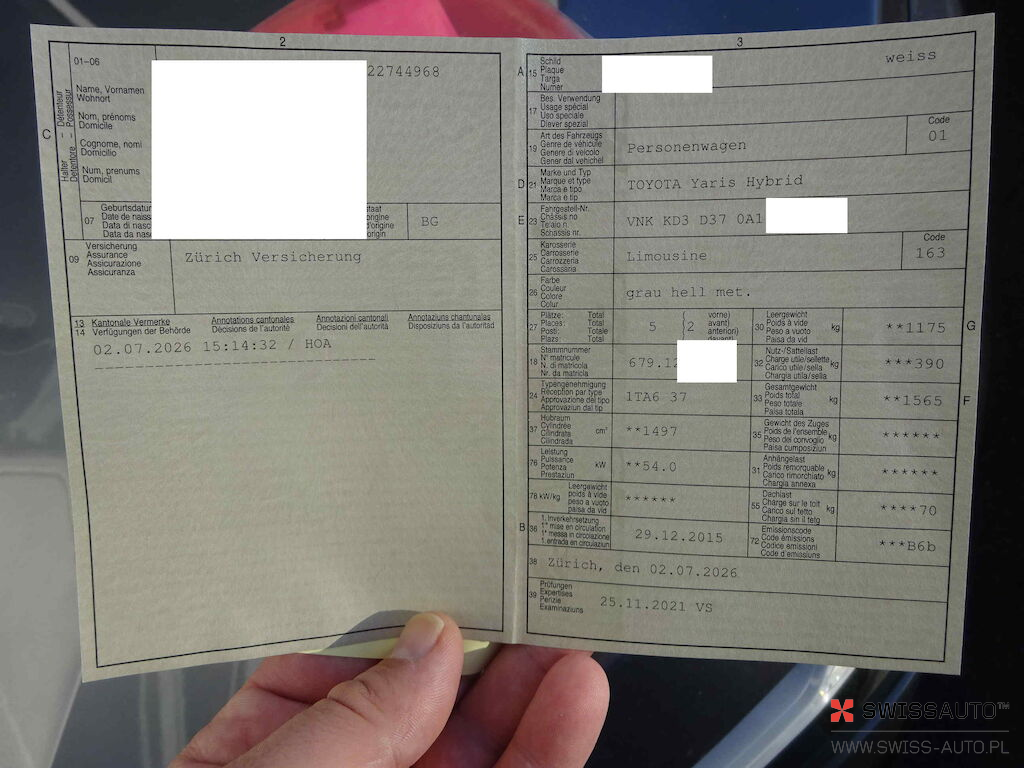 2
01-06
22744968
Détenteur Possessur
C
Halter Detentore
Name, Vornamen
Wohnort
Nom, prénoms
Domicile
Cognome, nomi
Domicilio
Num, prenums
Domicil
07 Geburtsdatum
Date de naiss
Data di nasc
Data da nasc
staat
origine
origine
origin
BG
09 Versicherung
Assurance
Assicurazione
Assicuranza
Zürich Versicherung
13 Kantonale Vermerke Annotations cantonales Annotazioni cantonali Annotaziuns chantunalas
14 Verfügungen der Behörde Décisions de l'autorité Decisioni dell'autorità Disposiziuns da l'autoritad
02.07.2026 15:14:32 / HOA
3
A 15 Schild
Plaque
Targa
Numer
weiss
17 Bes. Verwendung
Usage spécial
Uso speciale
Diever spezial
19 Art des Fahrzeugs
Genre de véhicule
Genere di veicolo
Gener dal vehichel
Personenwagen
Code
01
D 21 Marke und Typ
Marque et type
Marca e tipo
Marca e tip
TOYOTA Yaris Hybrid
E 23 Fahrgestell-Nr.
Châssis no
Telaio n.
Schassis nr.
VNK KD3 D37 0A1
25 Karosserie
Carrosserie
Carrozzeria
Carossaria
Limousine
Code
163
26 Farbe
Couleur
Colore
Colur
grau hell met.
27 Plätze: Total
Places: Total
Posti: Totale
Plazs: Total
5
(2
vorne)
avant)
anteriori)
davant)
30 Leergewicht
Poids à vide
Peso a vuoto
Paisa da vid
kg
**1175
G
18 Stammnummer
N° matricule
N. di matricola
Nr. da matricla
679.12
32 Nutz-/Sattellast
Charge utile/sellette
Carico utile/sella
Chargia utila/sella
kg
***390
24 Typengenehmigung
Réception par type
Approvazione del tipo
Approvaziun dal tip
1TA6 37
33 Gesamtgewicht
Poids total
Peso totale
Paisa totala
kg
**1565
F
37 Hubraum
Cylindrée
Cilindrata
Cilindrada
cm³
**1497
35 Gewicht des Zuges
Poids de l'ensemble
Peso del convoglio
Paisa cumposiziun
kg
******
76 Leistung
Puissance
Potenza
Prestaziun
kW
**54.0
31 Anhängelast
Poids remorquable
Carico rimorchiato
Chargia annexa
kg
******
78 kW/kg Leergewicht
poids à vide
peso a vuoto
paisa da vid
******
55 Dachlast
Charge sur le toit
Carico sul tetto
Chargia sin il tetg
kg
****70
B 36 1. Inverkehrsetzung
1re mise en circulation
1a messa in circolazione
1. entrada en circulaziun
29.12.2015
72 Emissionscode
Code émissions
Codice emissioni
Code d'emissiuns
***B6b
38 Zürich, den 02.07.2026
39 Prüfungen
Expertises
Perizie
Examinaziuns
25.11.2021 VS
SWISSAUTO™
WWW.SWISS-AUTO.PL